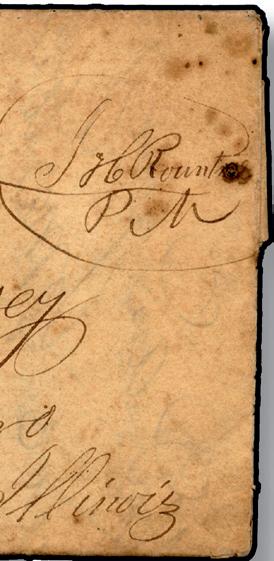 J H Rountree
P M
ey
o
Illinoiz